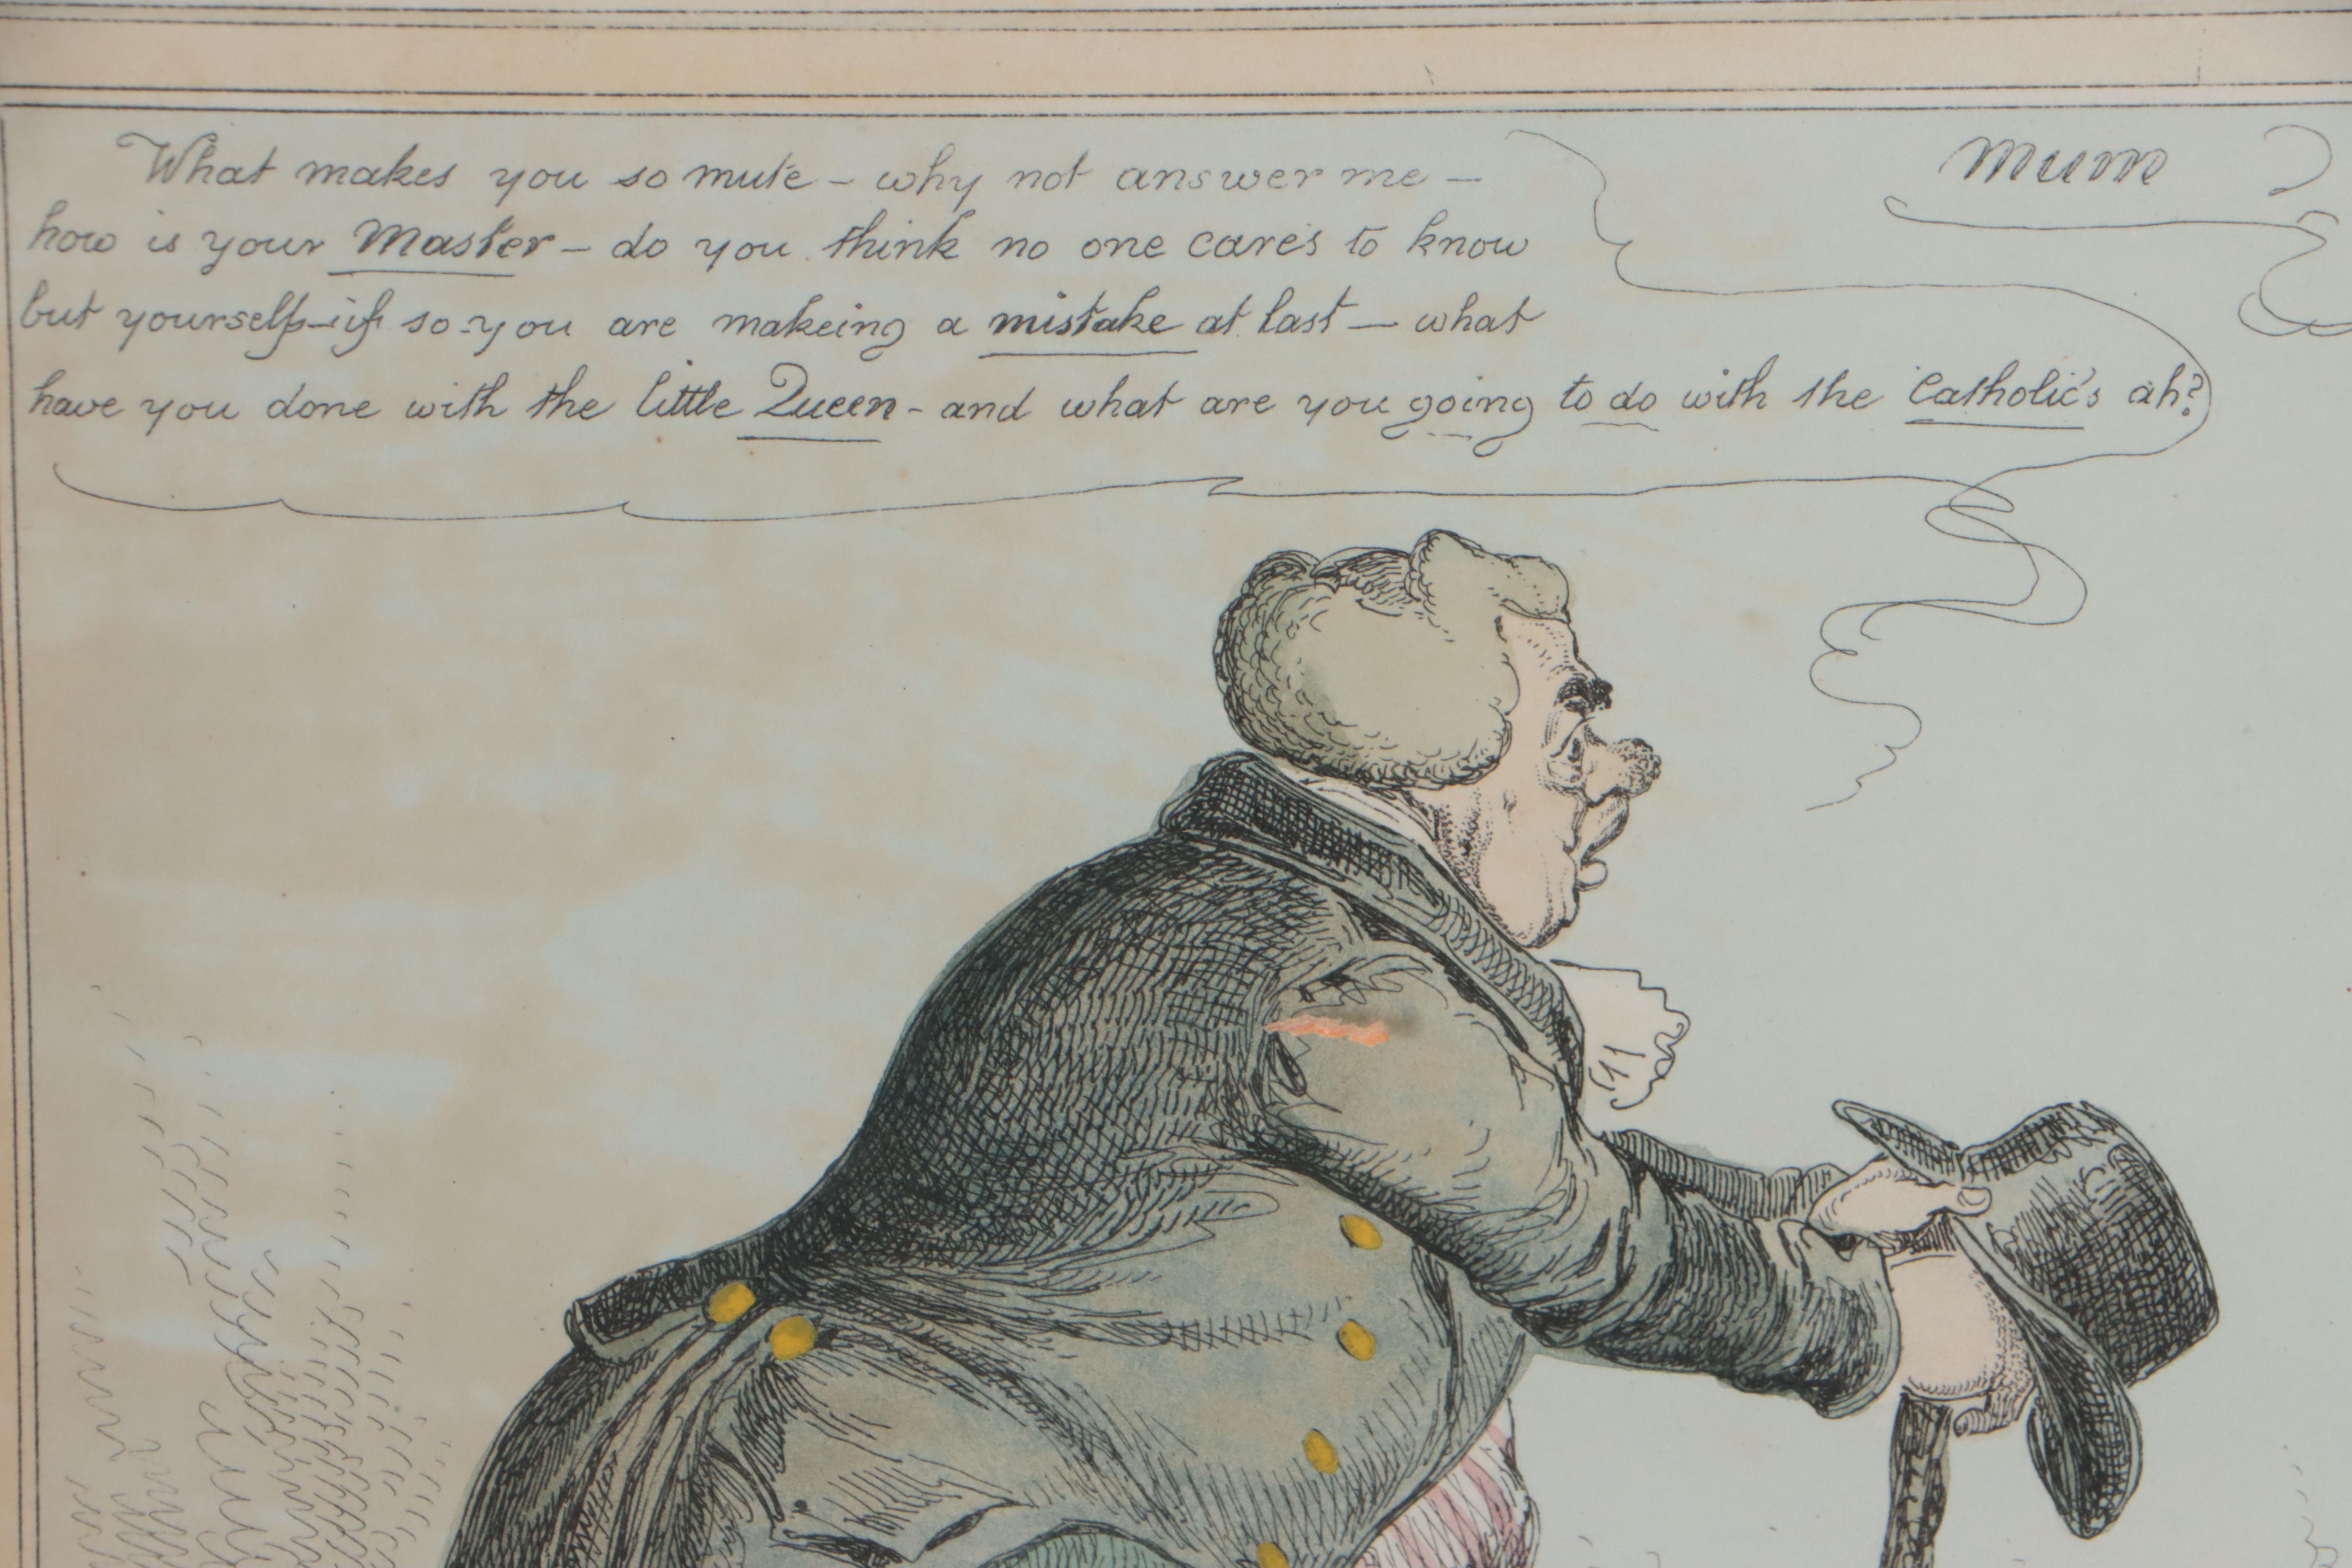 What makes you so mute – why not answer me –
how is your Master – do you think no one cares to know
but yourself – if so – you are makeing a mistake at last – what
have you done with the little Queen – and what are you going to do with the Catholic's ah?
mum